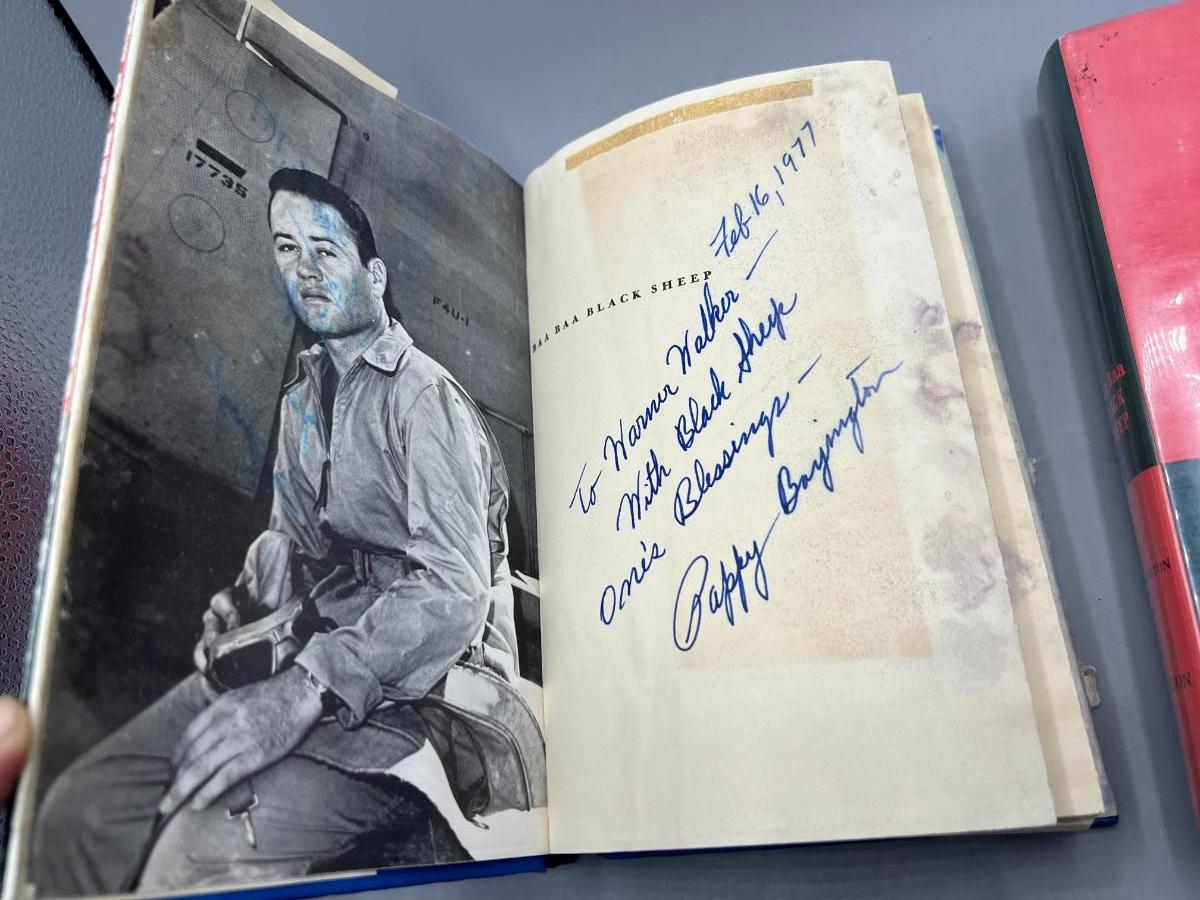 17735
F4U-1
BAA BAA BLACK SHEEP
Feb 16, 1977
To Warner Walker —
With Black Sheep
One's Blessings —
Pappy Boyington